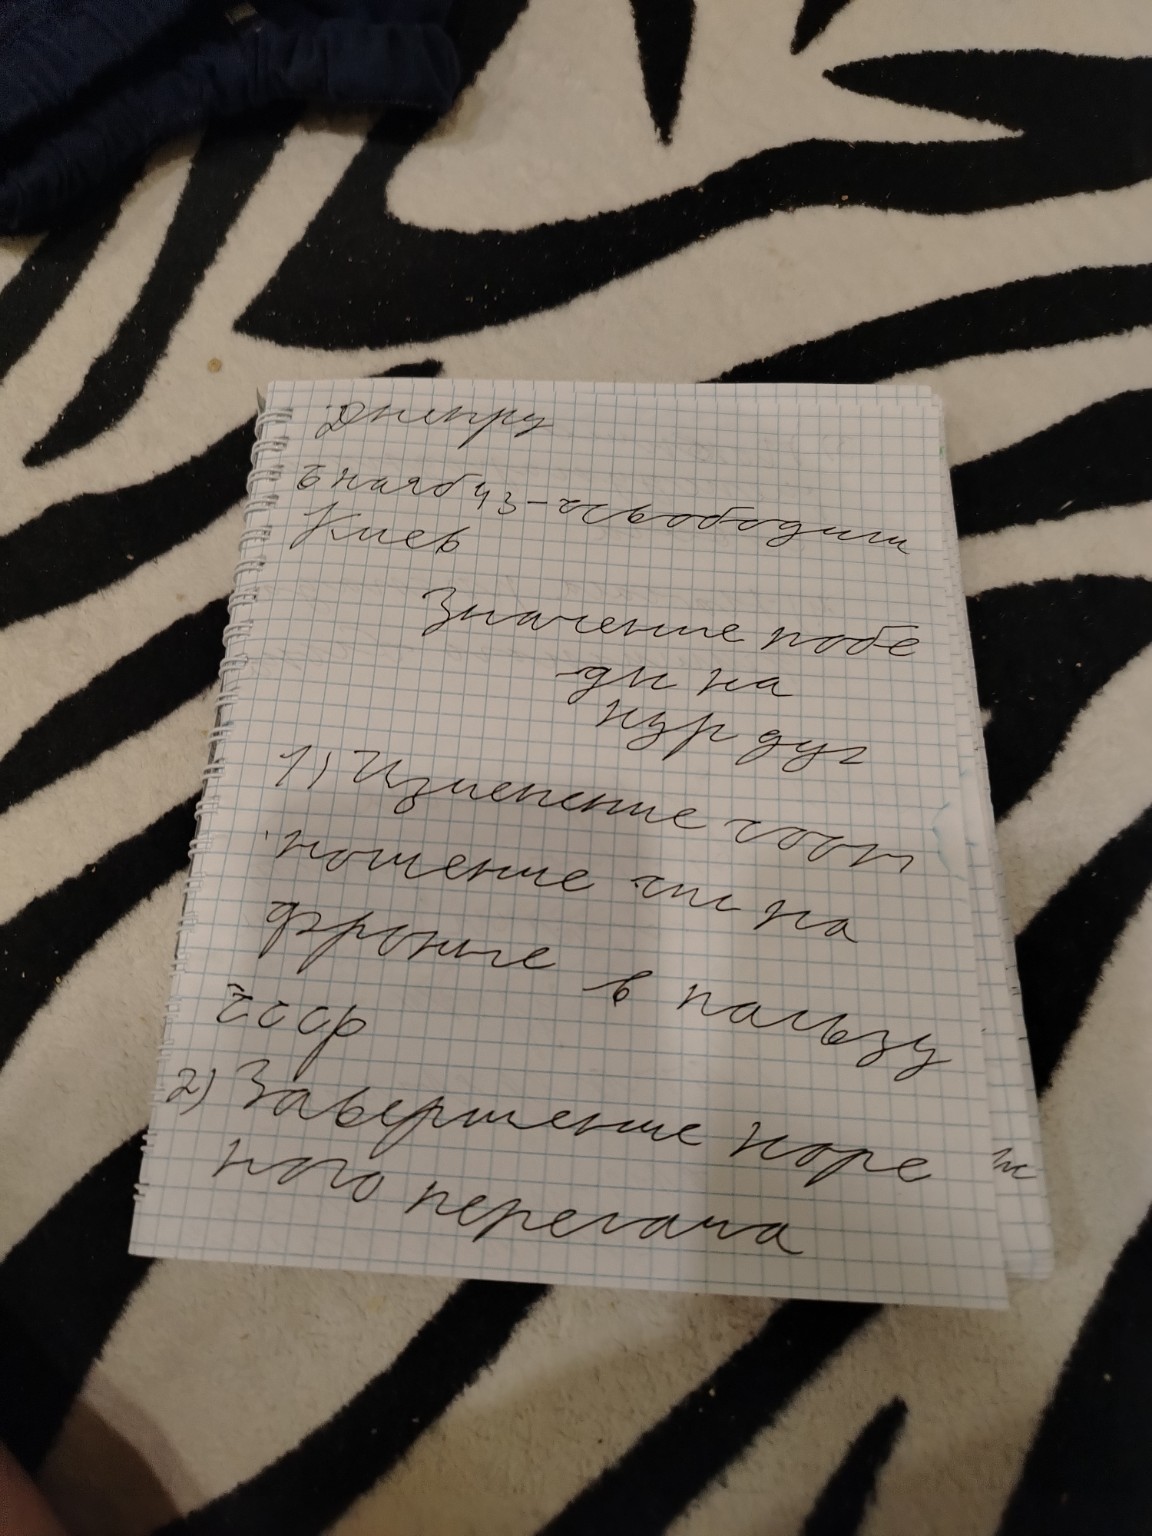 Днепру
6 нояб 43 - освободили
Киев
Значение побе
ды на
Кур дуг
1) Изменение соот
ношение сил на
фронте в пользу
СССР
2) Завершение коре
ного перелома